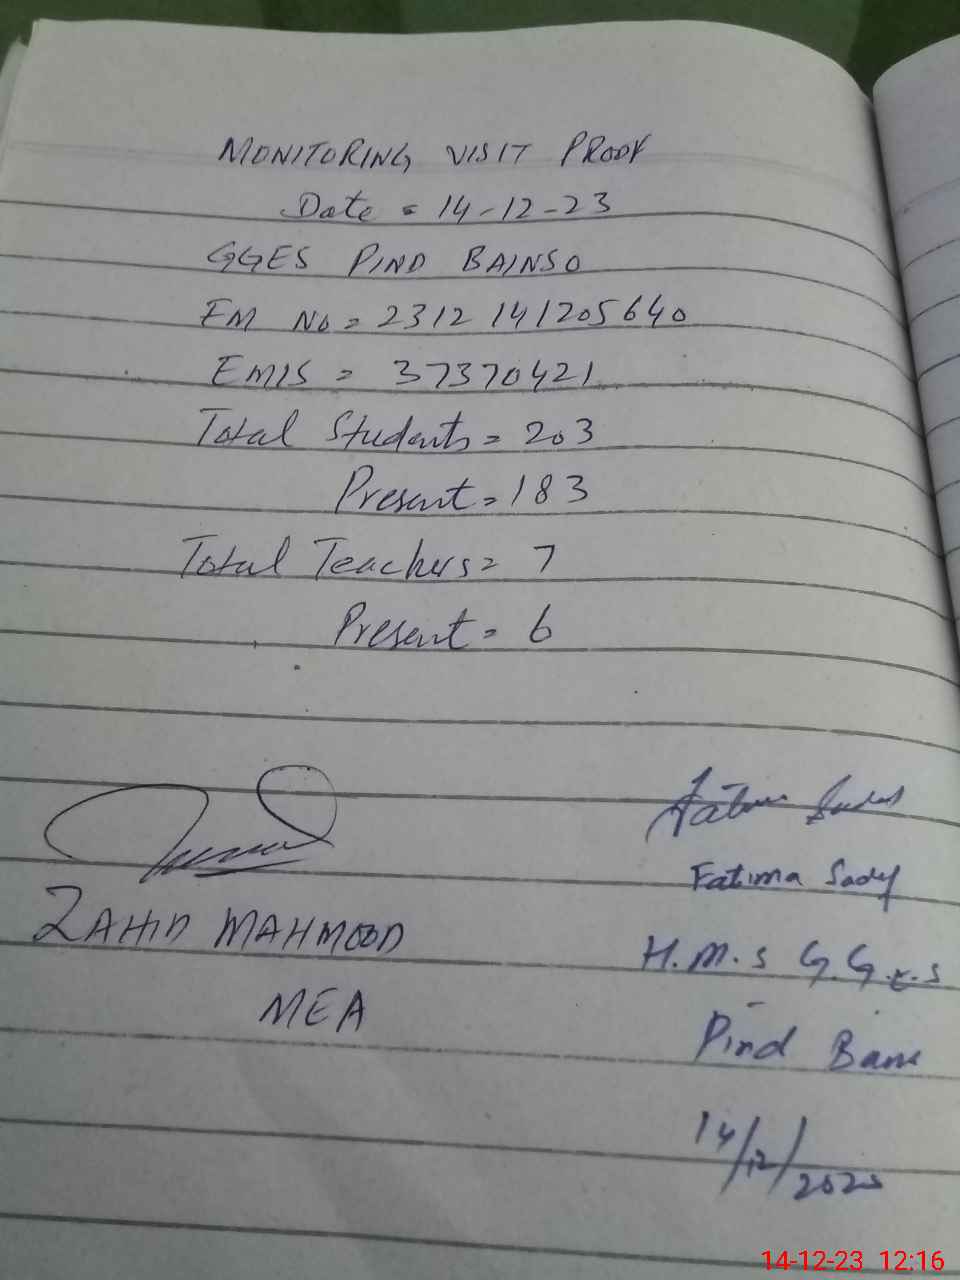 MONITORING VISIT PROOF
Date = 14-12-23
GGES PIND BAINSO
EM No = 2312141205640
EMIS = 37370421
Total Students = 203
Present = 183
Total Teachers = 7
Present = 6
ZAHID MAHMOOD
MEA
Fatima
Fatima
H.M.S G.G.E.S
Pind
14/12/
14-12-23 12:16